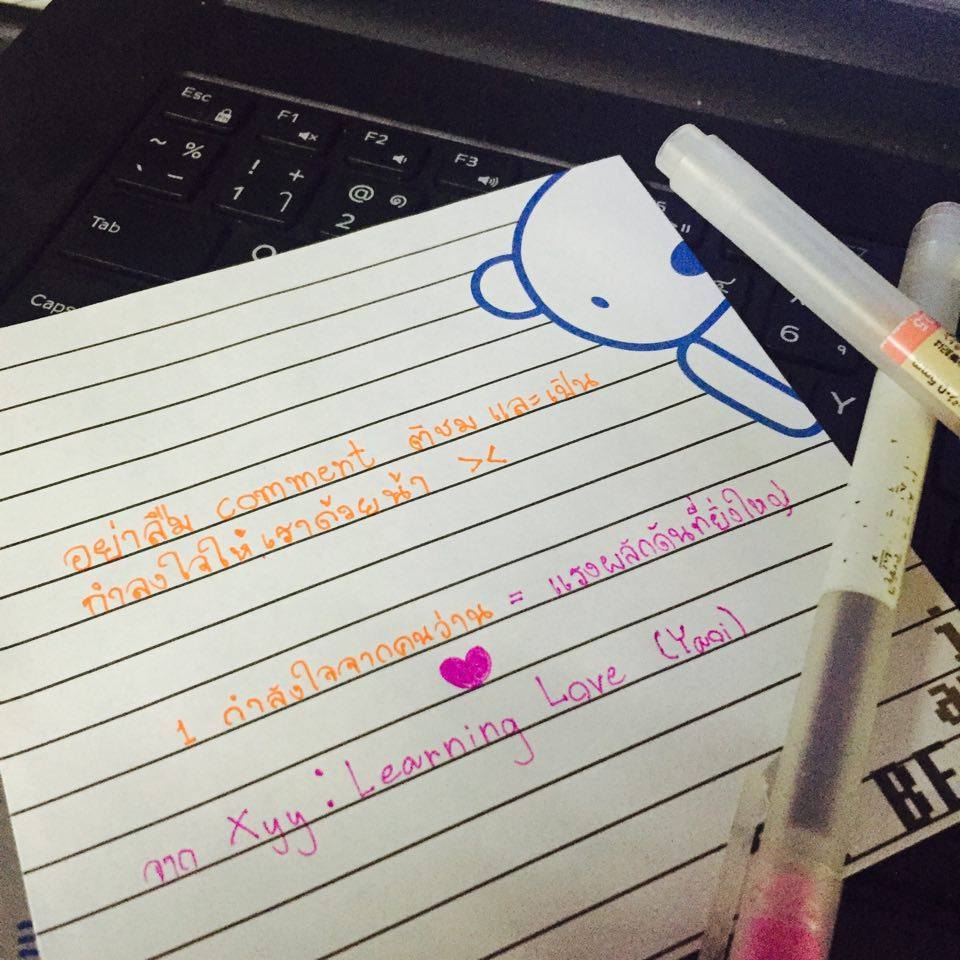 Esc
F1
F2
F3
~ %
! +
@ ๑
` -
1 ๅ
2
Tab
Caps
6
Y
อย่าลืม comment ติชม และเป็น
กำลังใจให้เราด้วยน้า ><
1 กำลังใจจากคนอ่าน = แรงผลักดันที่ยิ่งใหญ่
จาก Xyy : Learning Love (Yaoi)
BE